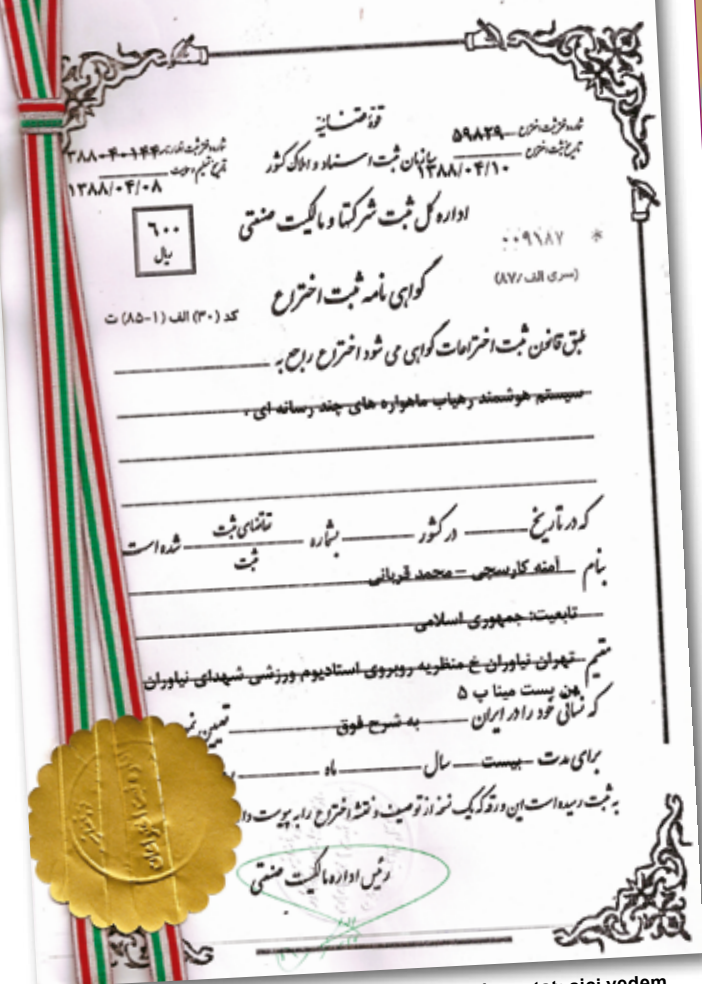 قوه قضائیه
شماره دفتر ثبت اختراع ۵۹۸۲۹
تاریخ ثبت اختراع ۱۳۸۸/۰۴/۱۰
سازمان ثبت اسناد و املاک کشور
۱۳۸۸/۰۴/۰۸
اداره کل ثبت شرکتها و مالکیت صنعتی
۰۰۹۱۸۷ *
۶۰۰
ریال
(سری الف/۸۷)
گواهی نامه ثبت اختراع
کد (۳۰) الف (۱-۸۵) ت
طبق قانون ثبت اختراعات گواهی می شود اختراع راجع به
سیستم هوشمند رهیاب ماهواره های چند رسانه ای .
که در تاریخ در کشور بشماره تقاضای ثبت
ثبت شده است
بنام آمنه کارسجی – محمد قربانی
تابعیت: جمهوری اسلامی
مقیم تهران نیاوران خ منظریه روبروی استادیوم ورزشی شهدای نیاوران
بن بست مینا پ ۵
که نشانی خود را در ایران به شرح فوق تعیین
برای مدت بیست سال ماه
به ثبت رسیده است این ورقه که یک نسخه از توصیف و نقشه اختراع را به پیوست
رئیس اداره مالکیت صنعتی